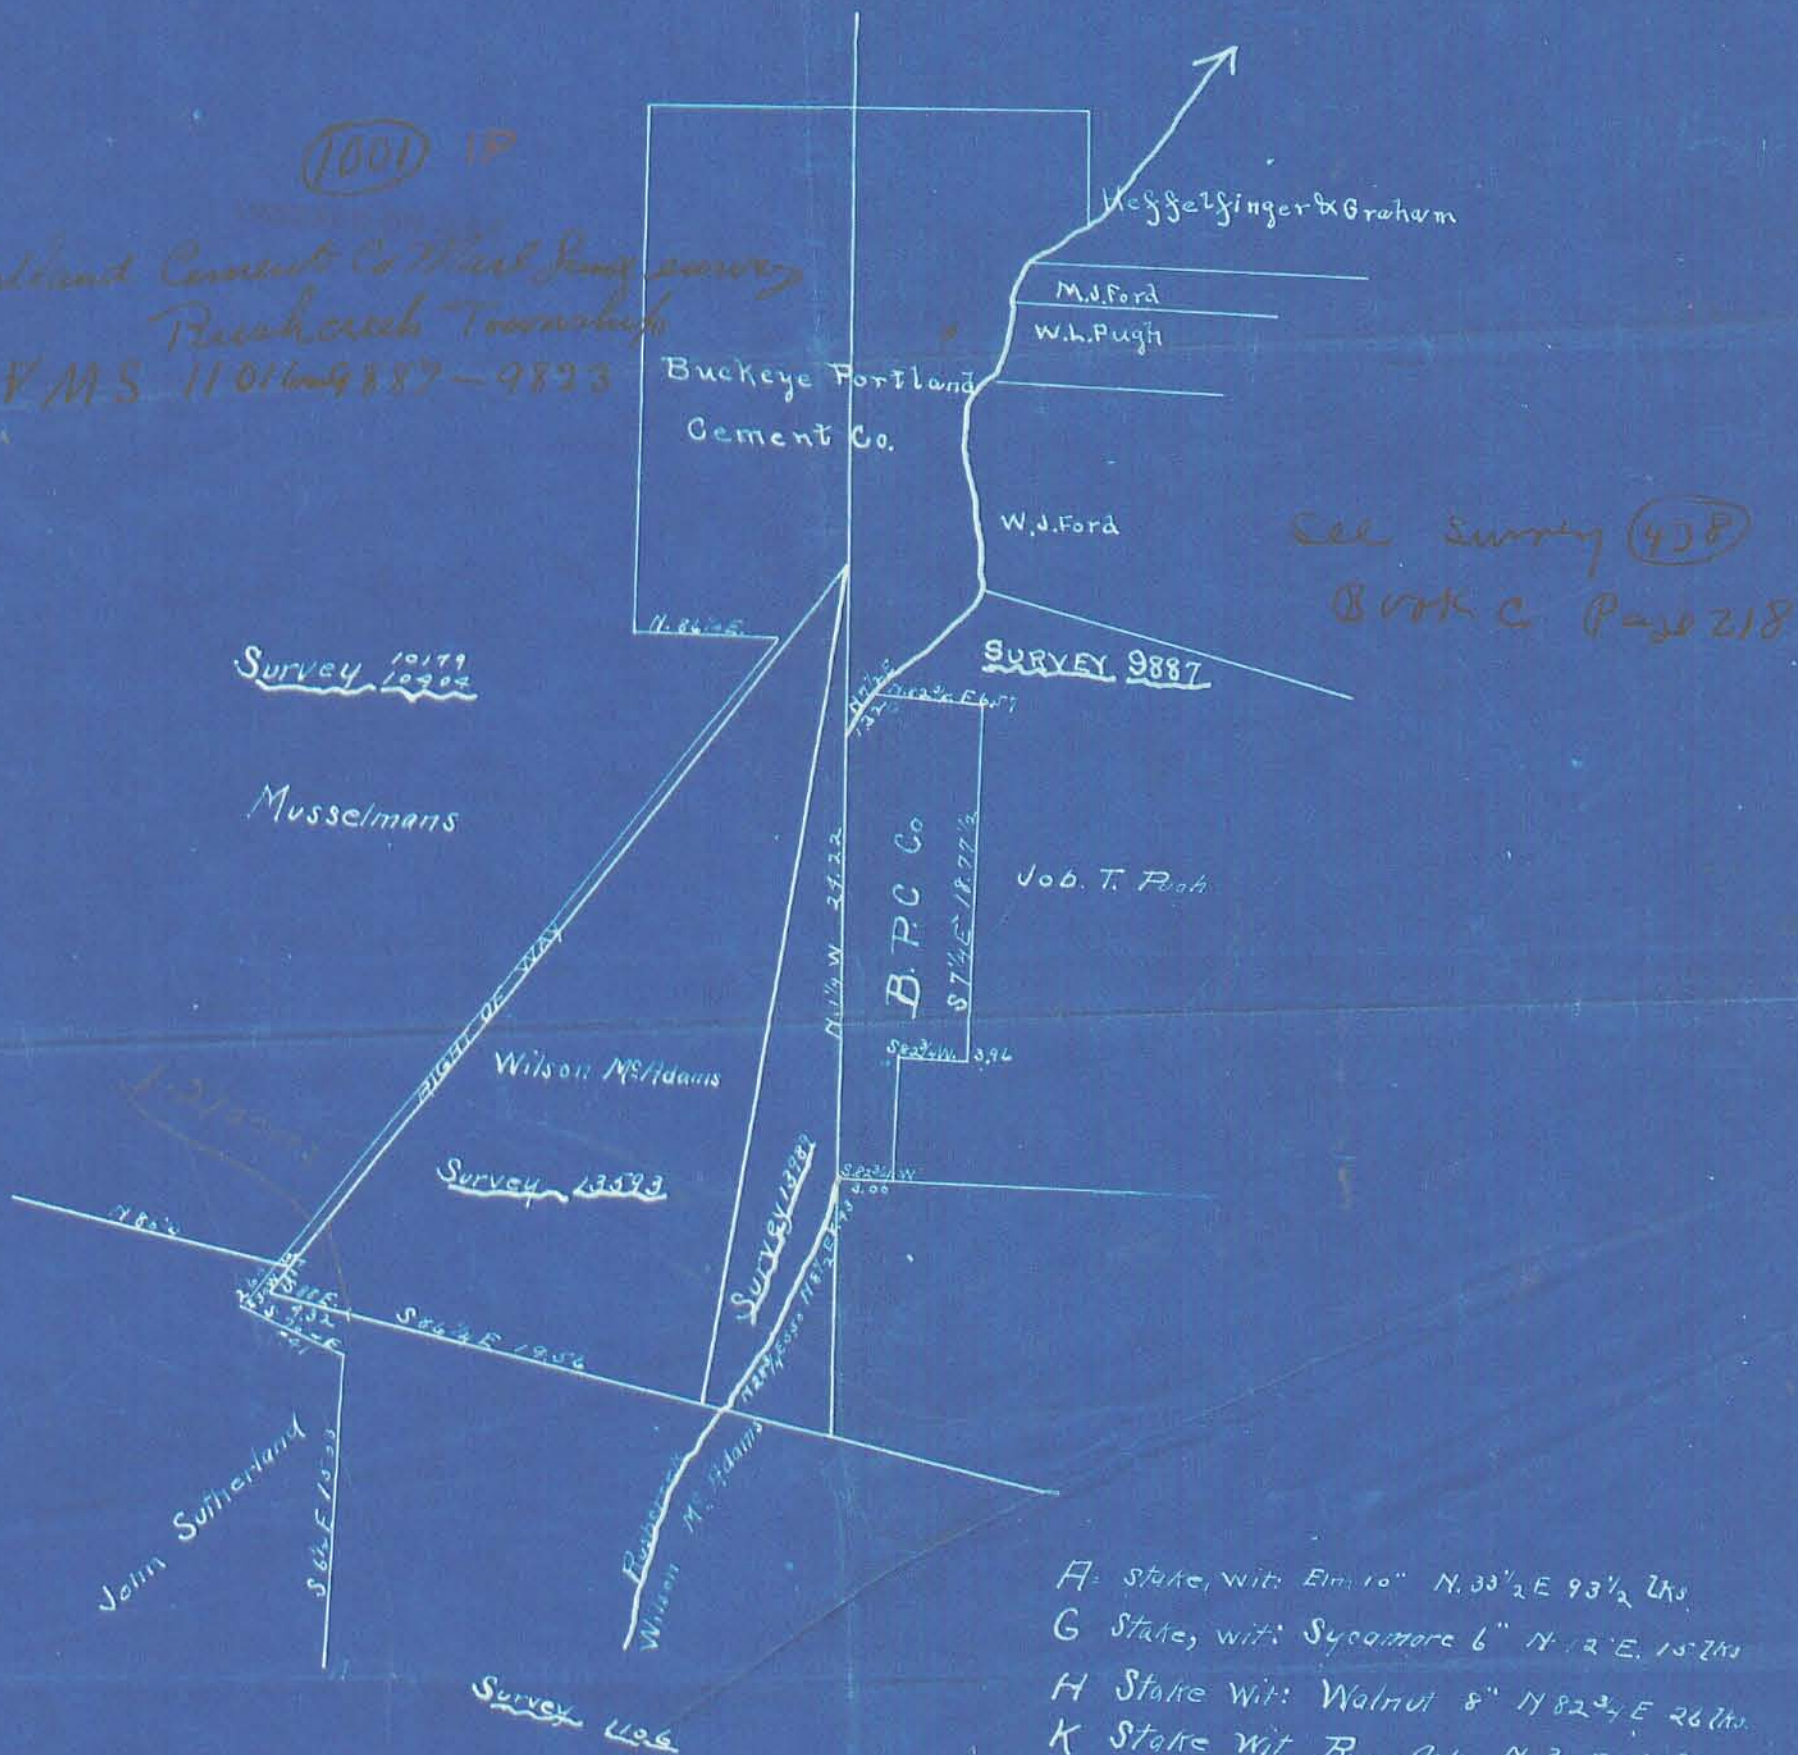 1001 IP
land Cement Co Marl Land survey
Rushcreek Township
V M S 11016 9887 - 9823
Heffelfinger & Graham
M.J. Ford
W.L. Pugh
Buckeye Portland
Cement Co.
W.J. Ford
See Survey 438
Book C Page 218
N. 86 E.
Survey 10179
10404
SURVEY 9887
N 7 1/2 E
1.32
N. 82 3/4 E 6.57
Musselmans
N. 1 1/4 W 24.22
B. P. C Co
S 7 1/4 E 18.77 1/2
Job. T. Pugh
RIGHT OF WAY
Wilson McAdams
S 82 3/4 W. 3.96
Survey 13593
Survey 1398
S 82 3/4 W
3.00
N 80 1/4
S 86 1/4 E 19.56
John Sutherland
S 6 1/2 E
Rushcreek
Wilson Mc. Adams
Survey 1106
A: Stake, wit: Elm 10" N. 33 1/2 E 93 1/2 lks.
G Stake, wit: Sycamore 6" N. 12 E. 15 lks
H Stake Wit: Walnut 8" N 82 3/4 E 26 lks.
K Stake Wit